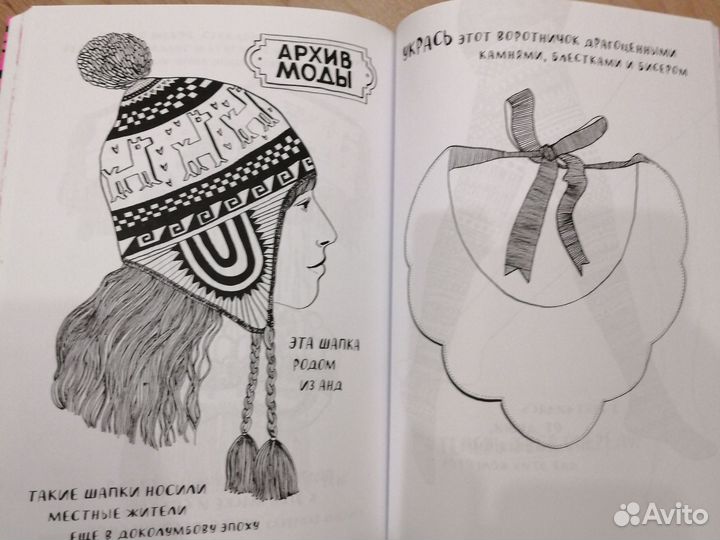 АРХИВ
МОДЫ
ЭТА ШАПКА
РОДОМ
ИЗ АНД
ТАКИЕ ШАПКИ НОСИЛИ
МЕСТНЫЕ ЖИТЕЛИ
ЕЩЕ В ДОКОЛУМБОВУ ЭПОХУ
УКРАСЬ ЭТОТ ВОРОТНИЧОК ДРАГОЦЕННЫМИ
КАМНЯМИ, БЛЕСТКАМИ И БИСЕРОМ
Avito